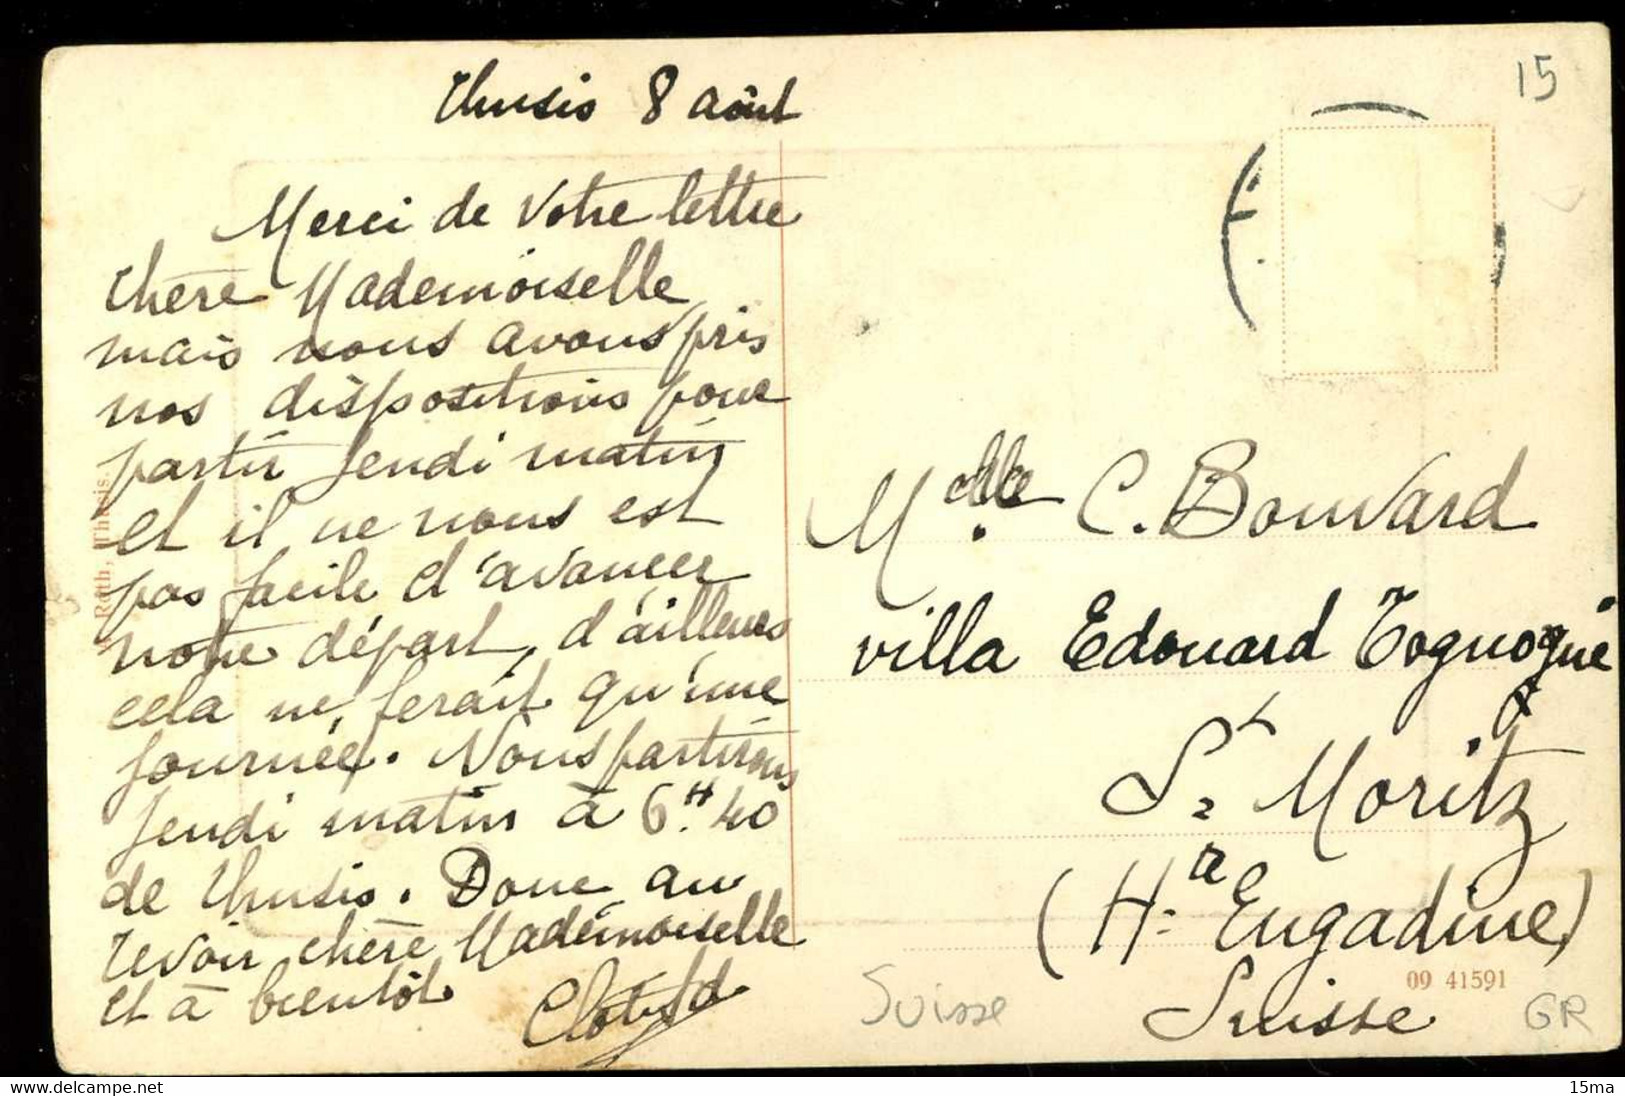 15
Thusis 8 août
Merci de votre lettre
chère Mademoiselle
mais nous avons pris
nos dispositions pour
partir jeudi matin
et il ne nous est
pas facile d'avancer
notre départ, d'ailleurs
cela ne ferait qu'une
journée. Nous partirons
jeudi matin à 6.H 40
de Thusis. Donc au
revoir chère Mademoiselle
et à bientôt
Roth, Thusis.
Melle C. Bouvard
villa Edouard
St Moritz
(Hte Engadine)
Suisse
09 41591
Suisse
GR
www.delcampe.net
15ma